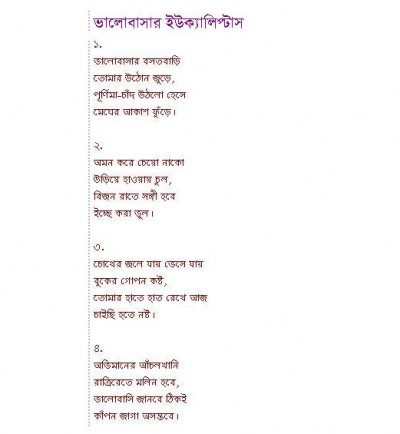 ভালোবাসার ইউক্যালিপ্টাস
১.
ভালোবাসার বসতবাড়ি
তোমার উঠোন জুড়ে,
পূর্ণিমা-চাঁদ উঠলো হেসে
মেঘের আকাশ ফুঁড়ে।
২.
অমন করে চেয়ো নাকো
উড়িয়ে হাওয়ায় চুল,
বিজন রাতে সঙ্গী হবে
ইচ্ছে করা ভুল।
৩.
চোখের জলে যায় ভেসে যায়
বুকের গোপন কষ্ট,
তোমার হাতে হাত রেখে আজ
চাইছি হতে নষ্ট।
৪.
অভিমানের আঁচলখানি
রাত্রিরেতে মলিন হবে,
ভালোবাসি জানবে ঠিকই
কাঁপন জাগা অসম্ভবে।